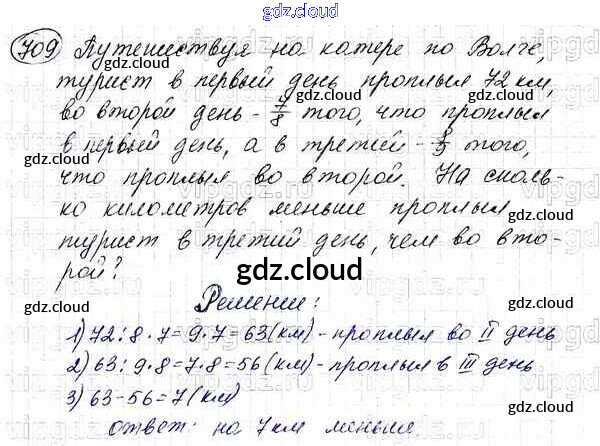 gdz.cloud
709 Путешествуя на катере по Волге,
gdz.cloud
турист в первый день проплыл 72 км,
во второй день - 7/8 того, что проплыл
gdz.cloud
в первый день, а в третий - того,
gdz.cloud
gdz.cloud
что проплыл во второй. На сколь-
ко километров меньше проплыл
gdz.cloud
турист в третий день, чем во вто-
рой?
gdz.cloud
gdz.cloud
Решение:
gdz.cloud
1) 72:8·7=9·7=63(км)-проплыл во II день
2) 63:9·8=7·8=56(км)-проплыл в III день
3) 63-56=7(км)
gdz.cloud
gdz.cloud
ответ: на 7км меньше.
gdz.cloud